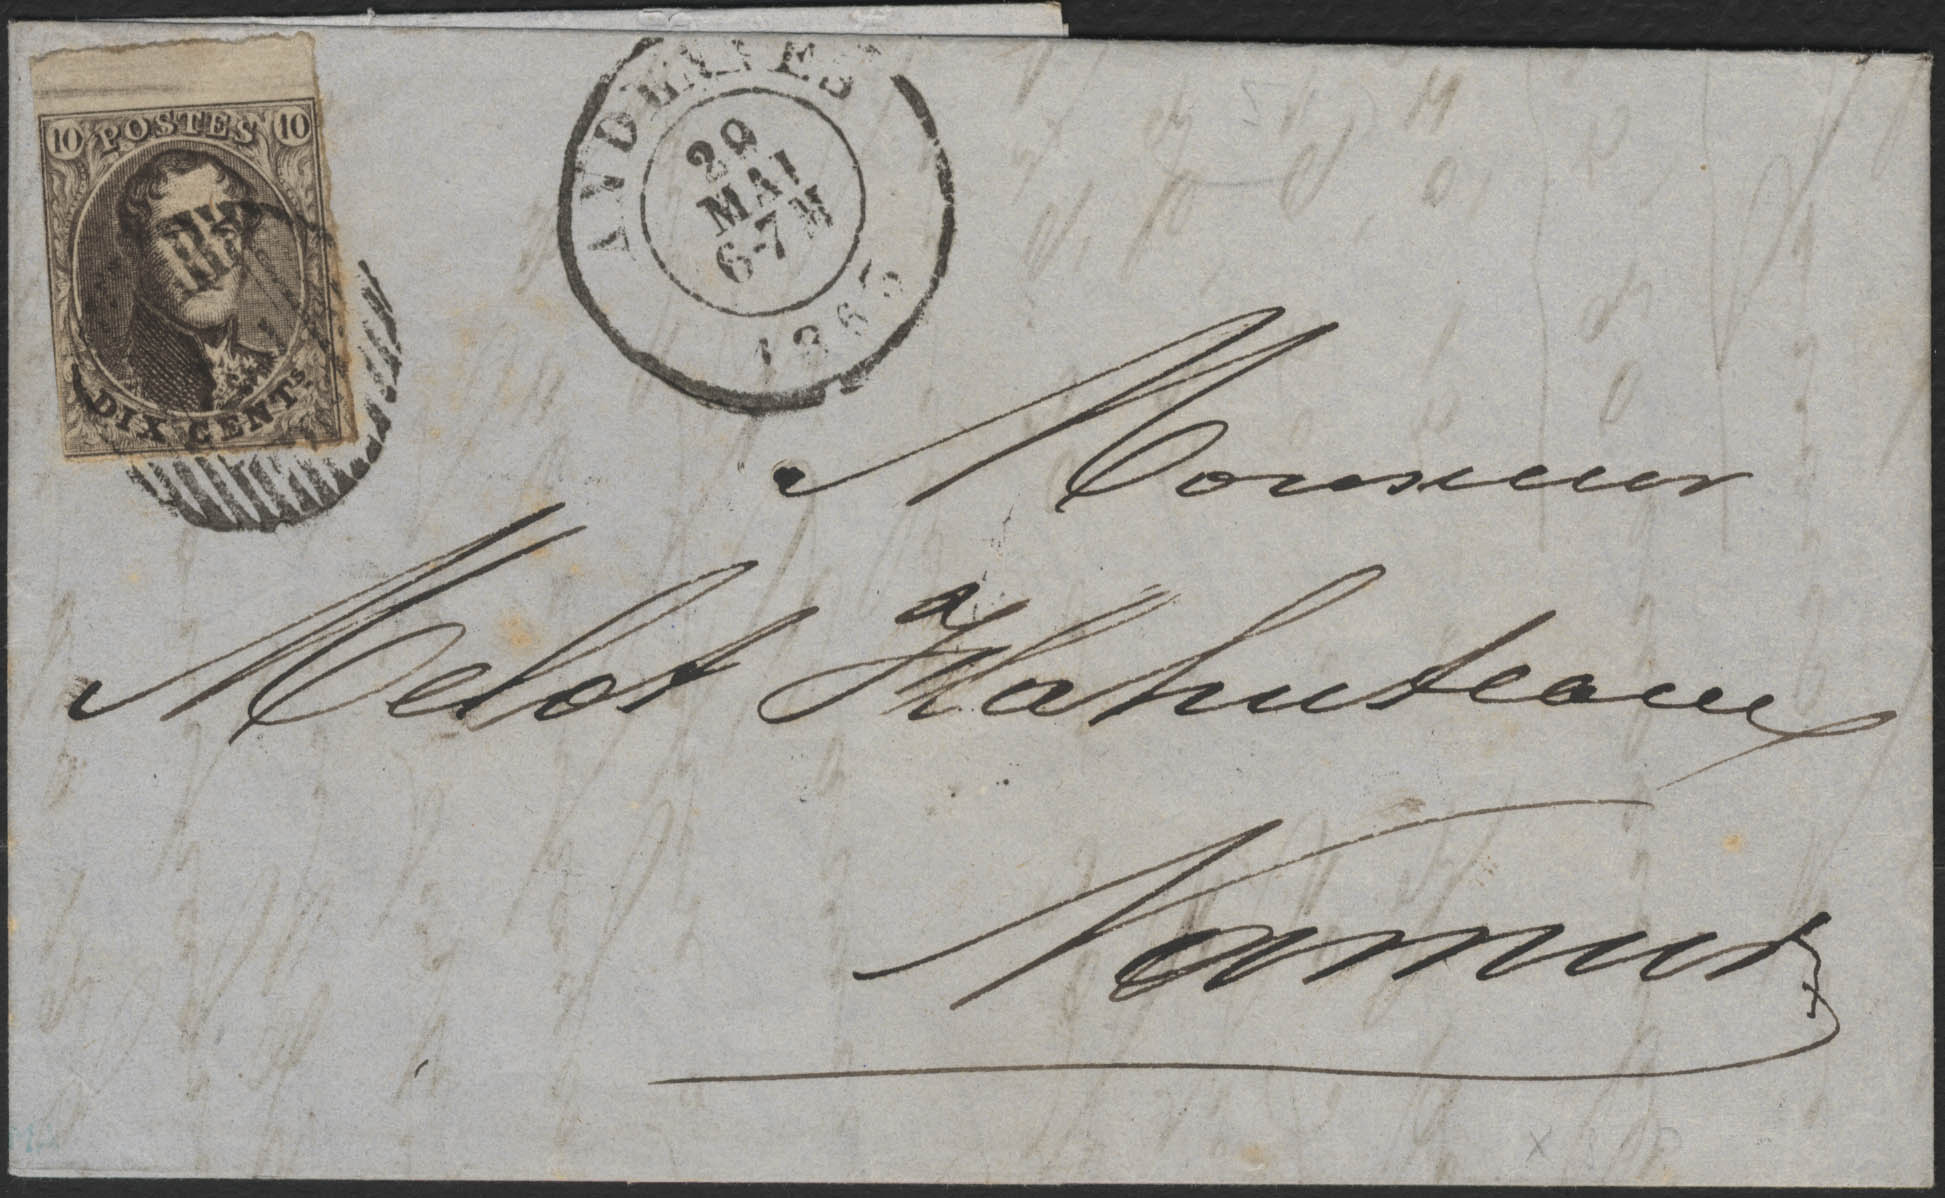 10 POSTES 10
DIX CENTS
ANDENNES
MAI
6-7 M
1863
Monsieur
Melot a Hahuteaux
Namur